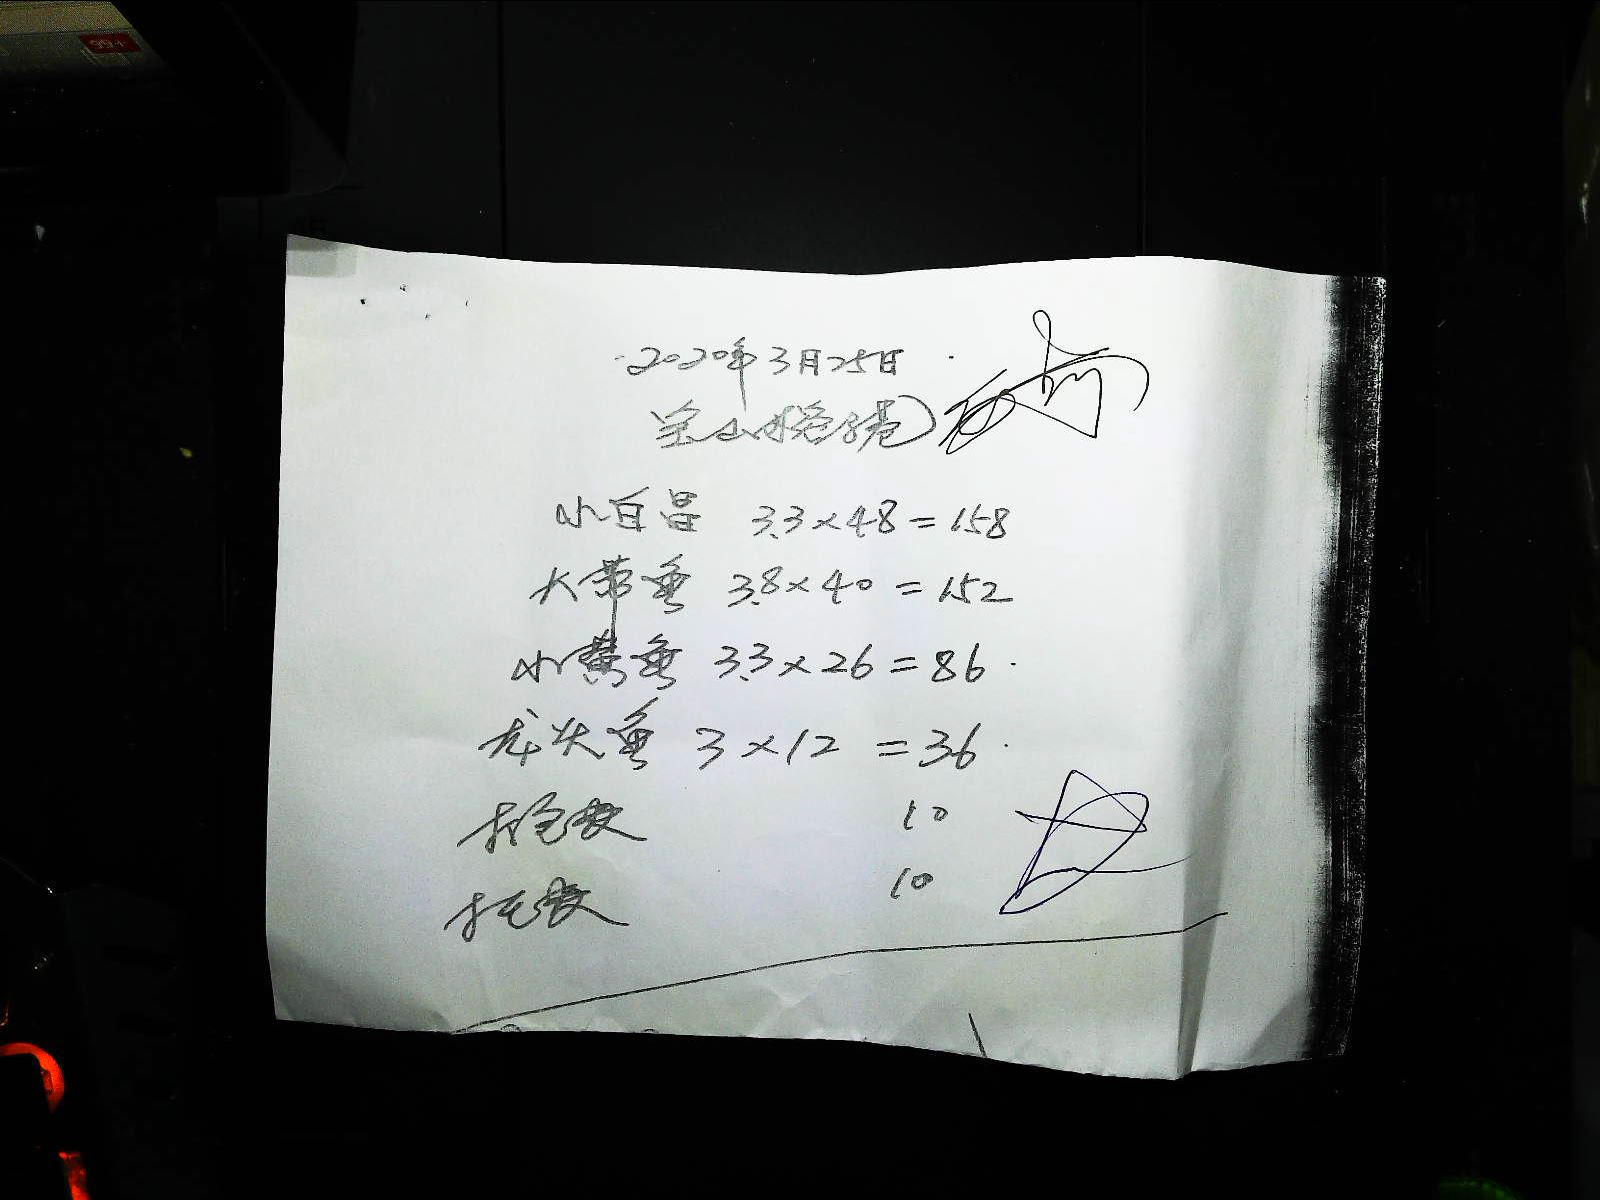 99+
2020年3月25日
宝山
小白昌 3.3×48=158
大带鱼 3.8×40=152
小黄鱼 3.3×26=86
龙头鱼 3×12=36
10
托费 10